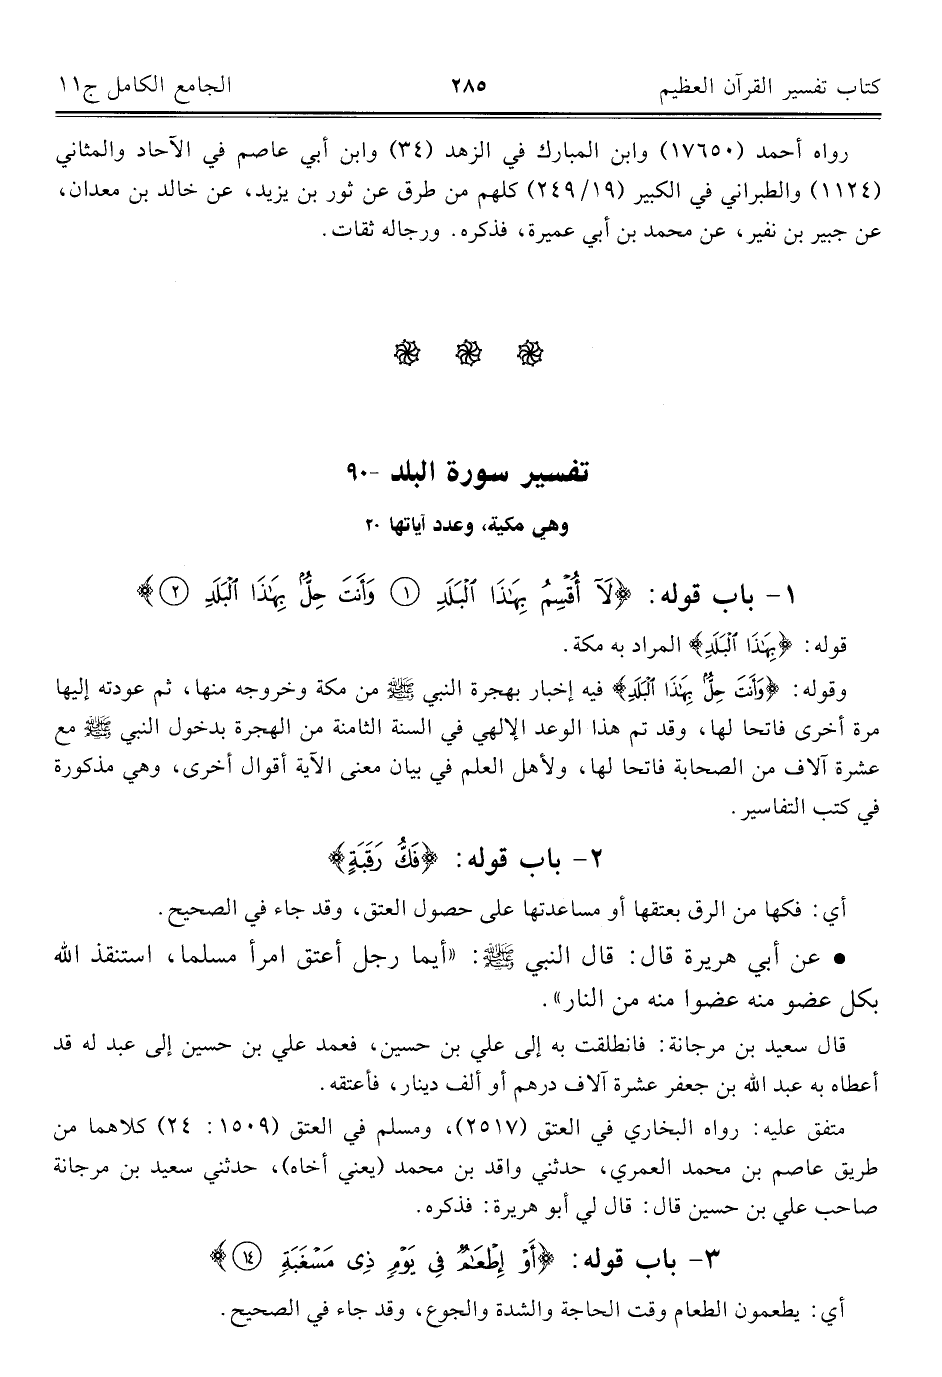 كتاب تفسير القرآن العظيم ٢٨٥ الجامع الكامل ج١١
رواه أحمد (١٧٦٥٠) وابن المبارك في الزهد (٣٤) وابن أبي عاصم في الآحاد والمثاني
(١١٢٤) والطبراني في الكبير (٢٤٩/١٩) كلهم من طرق عن ثور بن يزيد، عن خالد بن معدان،
عن جبير بن نفير، عن محمد بن أبي عميرة، فذكره. ورجاله ثقات.
تفسير سورة البلد -٩٠
وهي مكية، وعدد آياتها ٢٠
١- باب قوله: ﴿لَآ أُقۡسِمُ بِهَٰذَا ٱلۡبَلَدِ ١ وَأَنتَ حِلُّۢ بِهَٰذَا ٱلۡبَلَدِ ٢﴾
قوله: ﴿بِهَٰذَا ٱلۡبَلَدِ﴾ المراد به مكة.
وقوله: ﴿وَأَنتَ حِلُّۢ بِهَٰذَا ٱلۡبَلَدِ﴾ فيه إخبار بهجرة النبي ﷺ من مكة وخروجه منها، ثم عودته إليها
مرة أخرى فاتحا لها، وقد تم هذا الوعد الإلهي في السنة الثامنة من الهجرة بدخول النبي ﷺ مع
عشرة آلاف من الصحابة فاتحا لها، ولأهل العلم في بيان معنى الآية أقوال أخرى، وهي مذكورة
في كتب التفاسير.
٢- باب قوله: ﴿فَكُّ رَقَبَةٍ﴾
أي: فكها من الرق بعتقها أو مساعدتها على حصول العتق، وقد جاء في الصحيح.
● عن أبي هريرة قال: قال النبي ﷺ: «أيما رجل أعتق امرأ مسلما، استنقذ الله
بكل عضو منه عضوا منه من النار».
قال سعيد بن مرجانة: فانطلقت به إلى علي بن حسين، فعمد علي بن حسين إلى عبد له قد
أعطاه به عبد الله بن جعفر عشرة آلاف درهم أو ألف دينار، فأعتقه.
متفق عليه: رواه البخاري في العتق (٢٥١٧)، ومسلم في العتق (١٥٠٩: ٢٤) كلاهما من
طريق عاصم بن محمد العمري، حدثني واقد بن محمد (يعني أخاه)، حدثني سعيد بن مرجانة
صاحب علي بن حسين قال: قال لي أبو هريرة: فذكره.
٣- باب قوله: ﴿أَوۡ إِطۡعَٰمٞ فِي يَوۡمٖ ذِي مَسۡغَبَةٖ ١٤﴾
أي: يطعمون الطعام وقت الحاجة والشدة والجوع، وقد جاء في الصحيح.